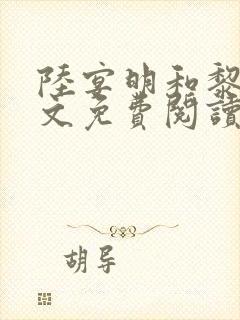 陸宴明和黎
文免費閱讀
胡导